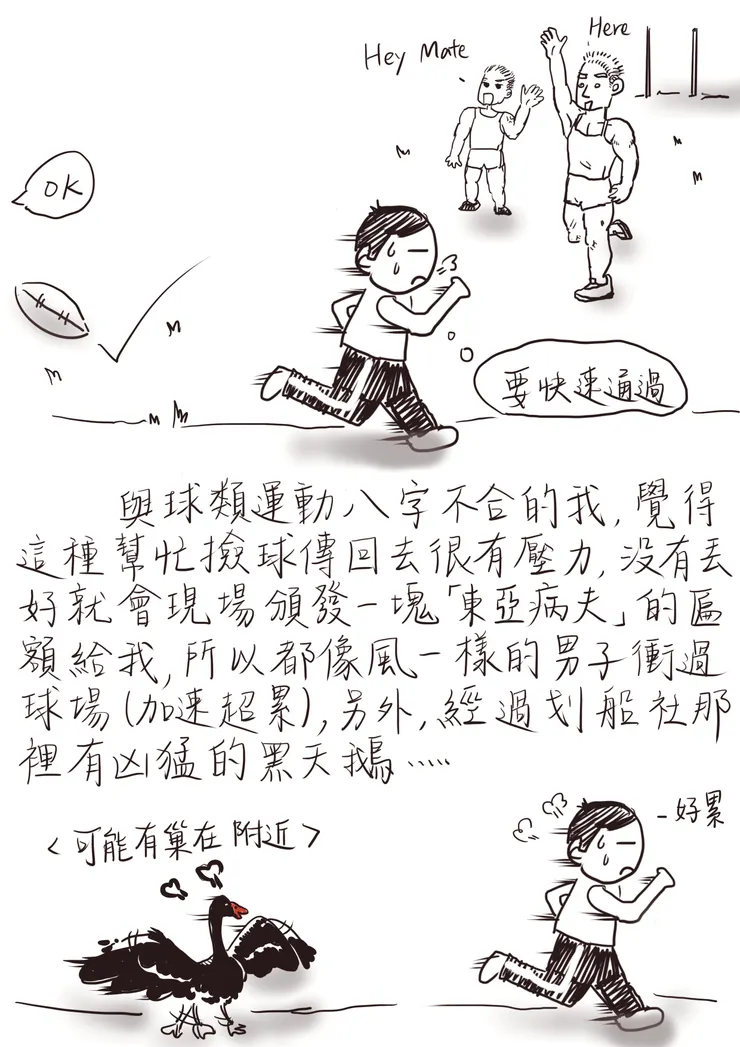 Here
Hey Mate
OK
要快速通過
與球類運動八字不合的我,覺得
這種幫忙撿球傳回去很有壓力,沒有丟
好就會現場頒發一塊「東亞病夫」的匾
額給我,所以都像風一樣的男子衝過
球場(加速超累),另外,經過划船社那
裡有凶猛的黑天鵝……
<可能有巢在附近>
-好累